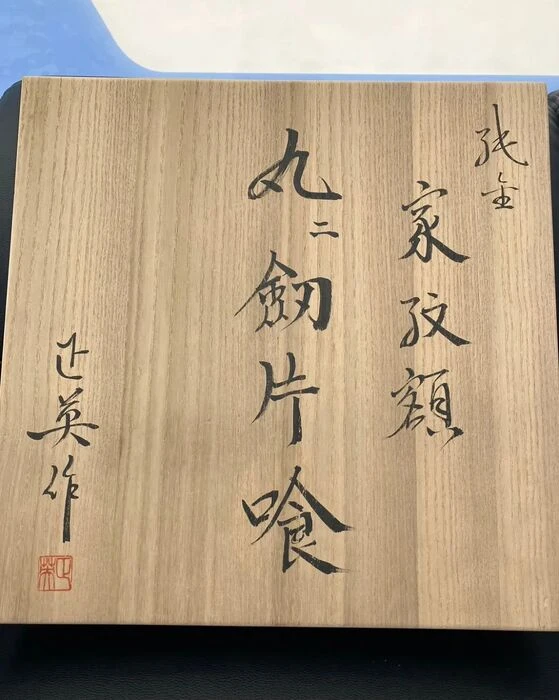 純金
家紋額
丸ニ劔片喰
正英作